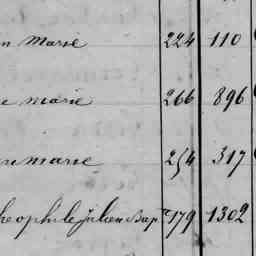 n Marie 224 110
e marie 266 896
marie 254 317
heophile Julien Bapte 179 1302